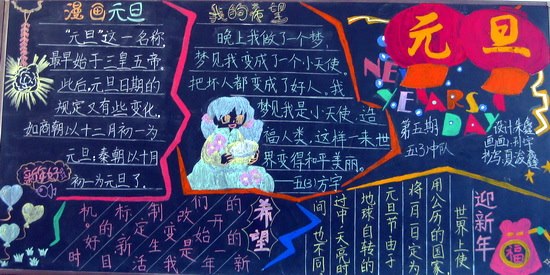 漫画元旦
"元旦"这一名称
最早始于三皇五帝
此后元旦日期的
规定又有些变化。
如商朝以十二月初一为
元旦；秦朝以十月
初一为元旦了。
新年好
我的希望
晚上我做了一个梦，
梦见我变成了一个小天使。
把坏人都变成了好人，我
梦见我是小天使，造
福人类，这样一来世
界变得和平美丽。
五(3)方宇
元旦
NEW
YEARS
DAY
第五期
五(3)中队
设计:朱鑫
希望
新的一年
是我们的
新的开始
生活改变
的新制
好的标定
机时
迎新年
世界上使
用公历的国家
将一月一日定为
元旦节由于
地球自转的
过中,天亮时
间也不同
福